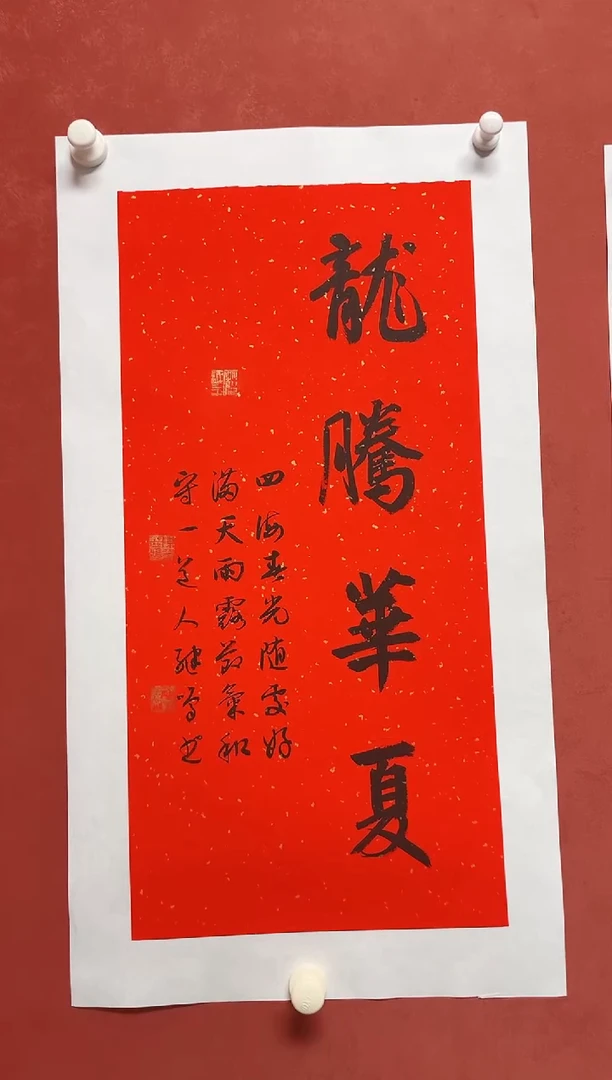 龍騰華夏
四海春光随處好
满天雨露萬氣和
守一道人継學书